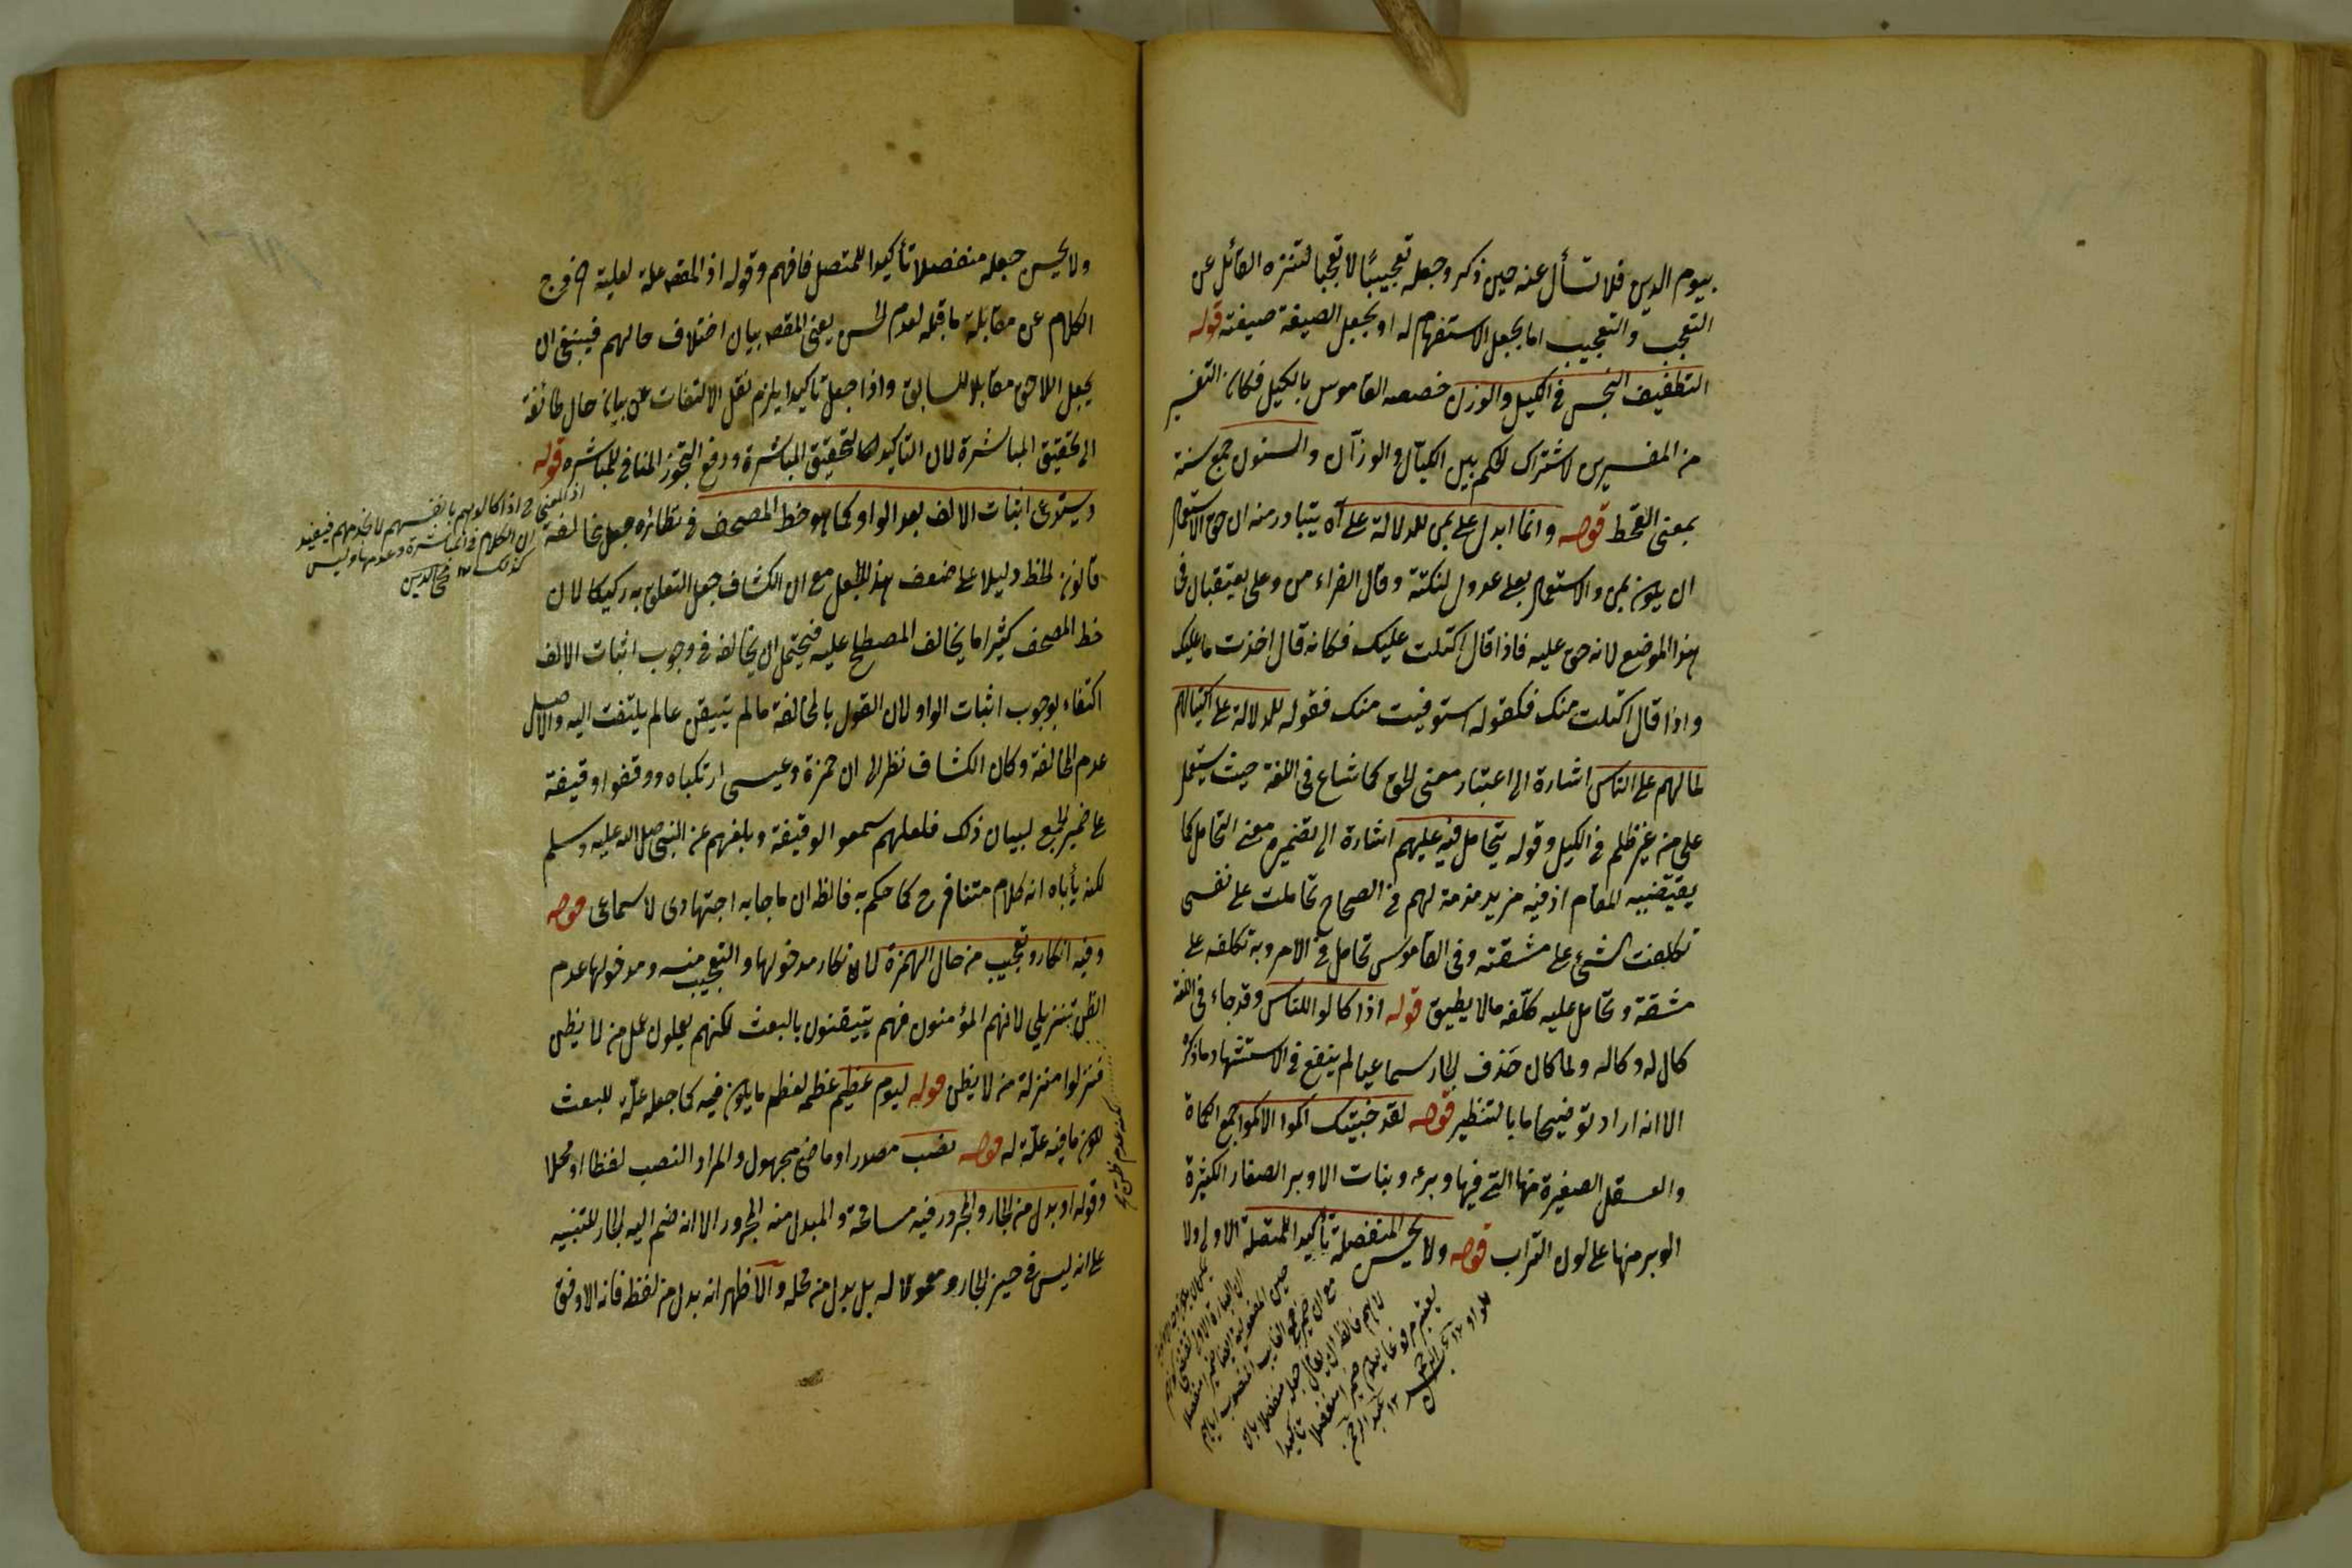 بيوم الدين فلا تسأل عنه حين ذكر وجعله تعجيبًا لا تعجبا لتنزه القائل عن
التعجب والتعجيب اما يجعل الاستفهام له او يجعل الصيغة صيغته قوله
التطفيف البخس في الكيل والوزن خصصه القاموس بالكيل فكان التفسير
من المفسرين لاشتراك الحكم بين الكيال والوزان والسنون جمع سنة
بمعنى القحط قوله وانما ابدل على بمن للدلالة على آه يتبادر منه ان حق الاستعمال
ان يكون بمن والاستعمال بعلى عدول لنكتة وقال الفراء من وعلى يعتقبان في
هذا الموضع لانه حق عليه فاذا قال اكتلت عليك فكانه قال اخذت ما عليك
واذا قال اكتلت منك فكقوله استوفيت منك فقوله للدلالة على اكتيالهم
لمالهم على الناس اشارة الى اعتبار معنى الحق كما شاع في اللغة حيث يستعمل
على من غير ظلم في الكيل وقوله يتحامل فيه عليهم اشارة الى تضمين معنى التحامل كما
يقتضيه المقام اذ فيه مزيد مذمة لهم في الصحاح تحاملت على نفسى
تكلفت الشئ على مشقته وفى القاموس تحامل في الامر وبه تكلفه على
مشقة وتحامل عليه كلّفه مالا يطيق قوله اذا كالوا للناس وقد جاء في اللغة
كال له وكاله ولما كان حذف الجار سماعيا لم ينفع في الاستشهاد ما ذكره
الا انه اراد توضيحا ما بالتنظير قوله لقد جنيتك اكموا الاكموا جمع الكماة
والعسقل الصغيرة منها التى فيها وبره وبنات الاوبر الصغار الكثيرة
الوبر منها على لون التراب قوله ولا يحسن المنفصلة تأكيدا للمتصلة الاولى ولا
ولا يحسن جعله منفصلا تأكيدا للمتصل فافهم وقوله اذ المقصـ علة لعلية خروج
الكلام عن مقابلة ما قبله لعدم الحسن يعنى المقصـ بيان اختلاف حالهم فينبغى ان
يجعل اللاحق مقابلا للسابق واذا جعل تاكيدا يلزم نقل الالتفات عن بيان حال طائفة
الى تحقيق المباشرة لان التاكيد لتحقيق المباشرة ودفع التجوز المنافى للمباشرة قوله
ويستدعى اثبات الالف بعد الواو كما هو خط المصحف في نظائره جعل مخالفة
قانون الخط دليلا على ضعف هذا الجعل مع ان الكشاف جعل التعلق به ركيكا لان
خط المصحف كثيرا ما يخالف المصطلح عليه فيحتمل ان يخالفه في وجوب اثبات الالف
اكتفاء بوجوب اثبات الواو لان القول بالمخالفة مالم يتيقن مالم يلتفت اليه والاصل
عدم المخالفة وكان الكشاف نظر الى ان حمزة وعيسى ارتكباه ووقفوا وقيفة
على ضمير الجمع لبيان ذلك فلعلهم سمعوا الوقيفة وبلغهم عن النبى صلى الله عليه وسلم
لكنه يأباه انه كلام متنافر ح كما حكم به فالظ ان ما جابه اجتهادى لا سماعى قوله
وفيه انكار وتعجيب من حال الهمزة لانكار مدخولها والتعجيب منه ومدخولها عدم
الظن تنزيلى لانهم المؤمنون فهم يتيقنون بالبعث لكنهم يعملون عمل من لا يظن
فنزلوا منزلة من لا يظن قوله ليوم عظيم عظمه لعظم ما يكون فيه كما جعله علة للبعث
لكون ما فيه علة له قوله نصب مصدر او ماضى مجهول والمراد النصب لفظا او محلا
وقوله او بدل من الجار والمجرور فيه مسامحة والمبدل منه المجرور الا انه ضم اليه الجار للتنبيه
على انه ليس في حيز الجار ومعمولا له بل بدل من محله والاظهر انه بدل من لفظه فانه الاوفق
اذ المعنى ح اذا كالوهم بانفسهم لا بخدمهم فيفيد
ان الكلام في المباشرة وعدمها وليس
كذلك